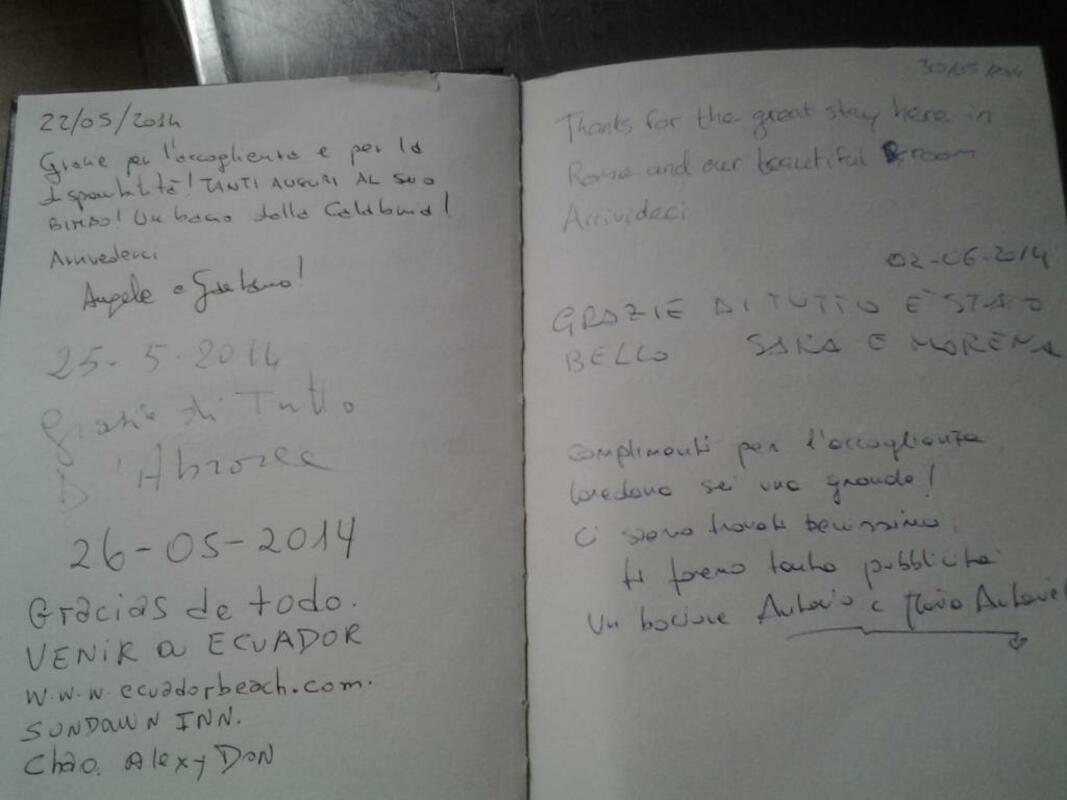 22/05/2014
Grazie per l'accoglienza e per la
disponibilità! TANTI AUGURI AL SUO
BIMBO! Un bacio dalla Calabria!
Arrivederci
Angela e Gaetano!
25-5-2014
Grazie di Tutto
26-05-2014
Gracias de todo.
VENIR a ECUADOR
w.w.w.ecuadorbeach.com.
SUNDOWN INN.
Chao. Alex y DON
30/05/2014
Thanks for the great stay here in
Rome and our beautiful room
Arrivideci
02-06-2014
GRAZIE DI TUTTO E' STATO
BELLO SARA E MORENA
Complimenti per l'accoglienza,
Loredana sei una grande!
Ci siamo trovati benissimo,
ti faremo tanta pubblicità
Un bacione Antonio e